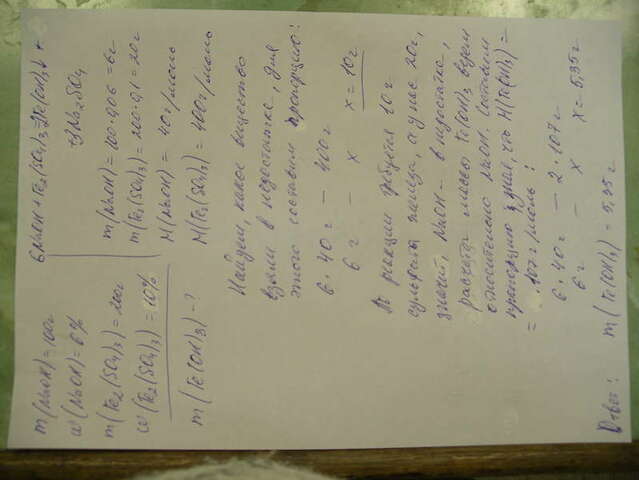 m(NaOH)=100г
ω(NaOH)=6%
m(Fe₂(SO₄)₃)=200г
ω(Fe₂(SO₄)₃)=10%
m(Fe(OH)₃)-?
6NaOH+Fe₂(SO₄)₃=2Fe(OH)₃↓+
+3Na₂SO₄
m(NaOH)=100·0,06=6г
m(Fe₂(SO₄)₃)=200·0,1=20г
M(NaOH)=40г/моль
M(Fe₂(SO₄)₃)=400г/моль
Найдём, какое вещество
взято в недостатке, для
этого составим пропорцию:
6·40г – 400г
6г – x x=10г
В реакции требуется 10г
сульфата железа, а у нас 20г,
значит, NaOH – в недостатке,
расчёт массы Fe(OH)₃ ведём
относительно NaOH. Составим
пропорцию, зная, что M(Fe(OH)₃)=
=107г/моль:
6·40г – 2·107г
6г – x x=5,35г
Ответ: m(Fe(OH)₃)=5,35г